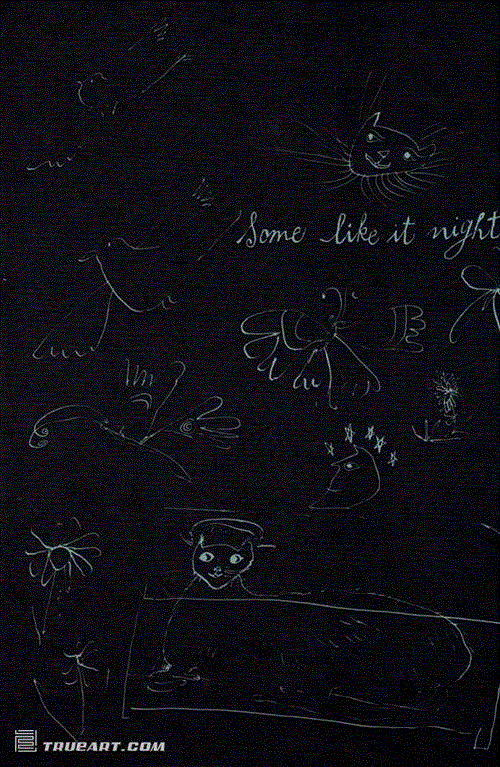 Some like it night
TRUEART.COM